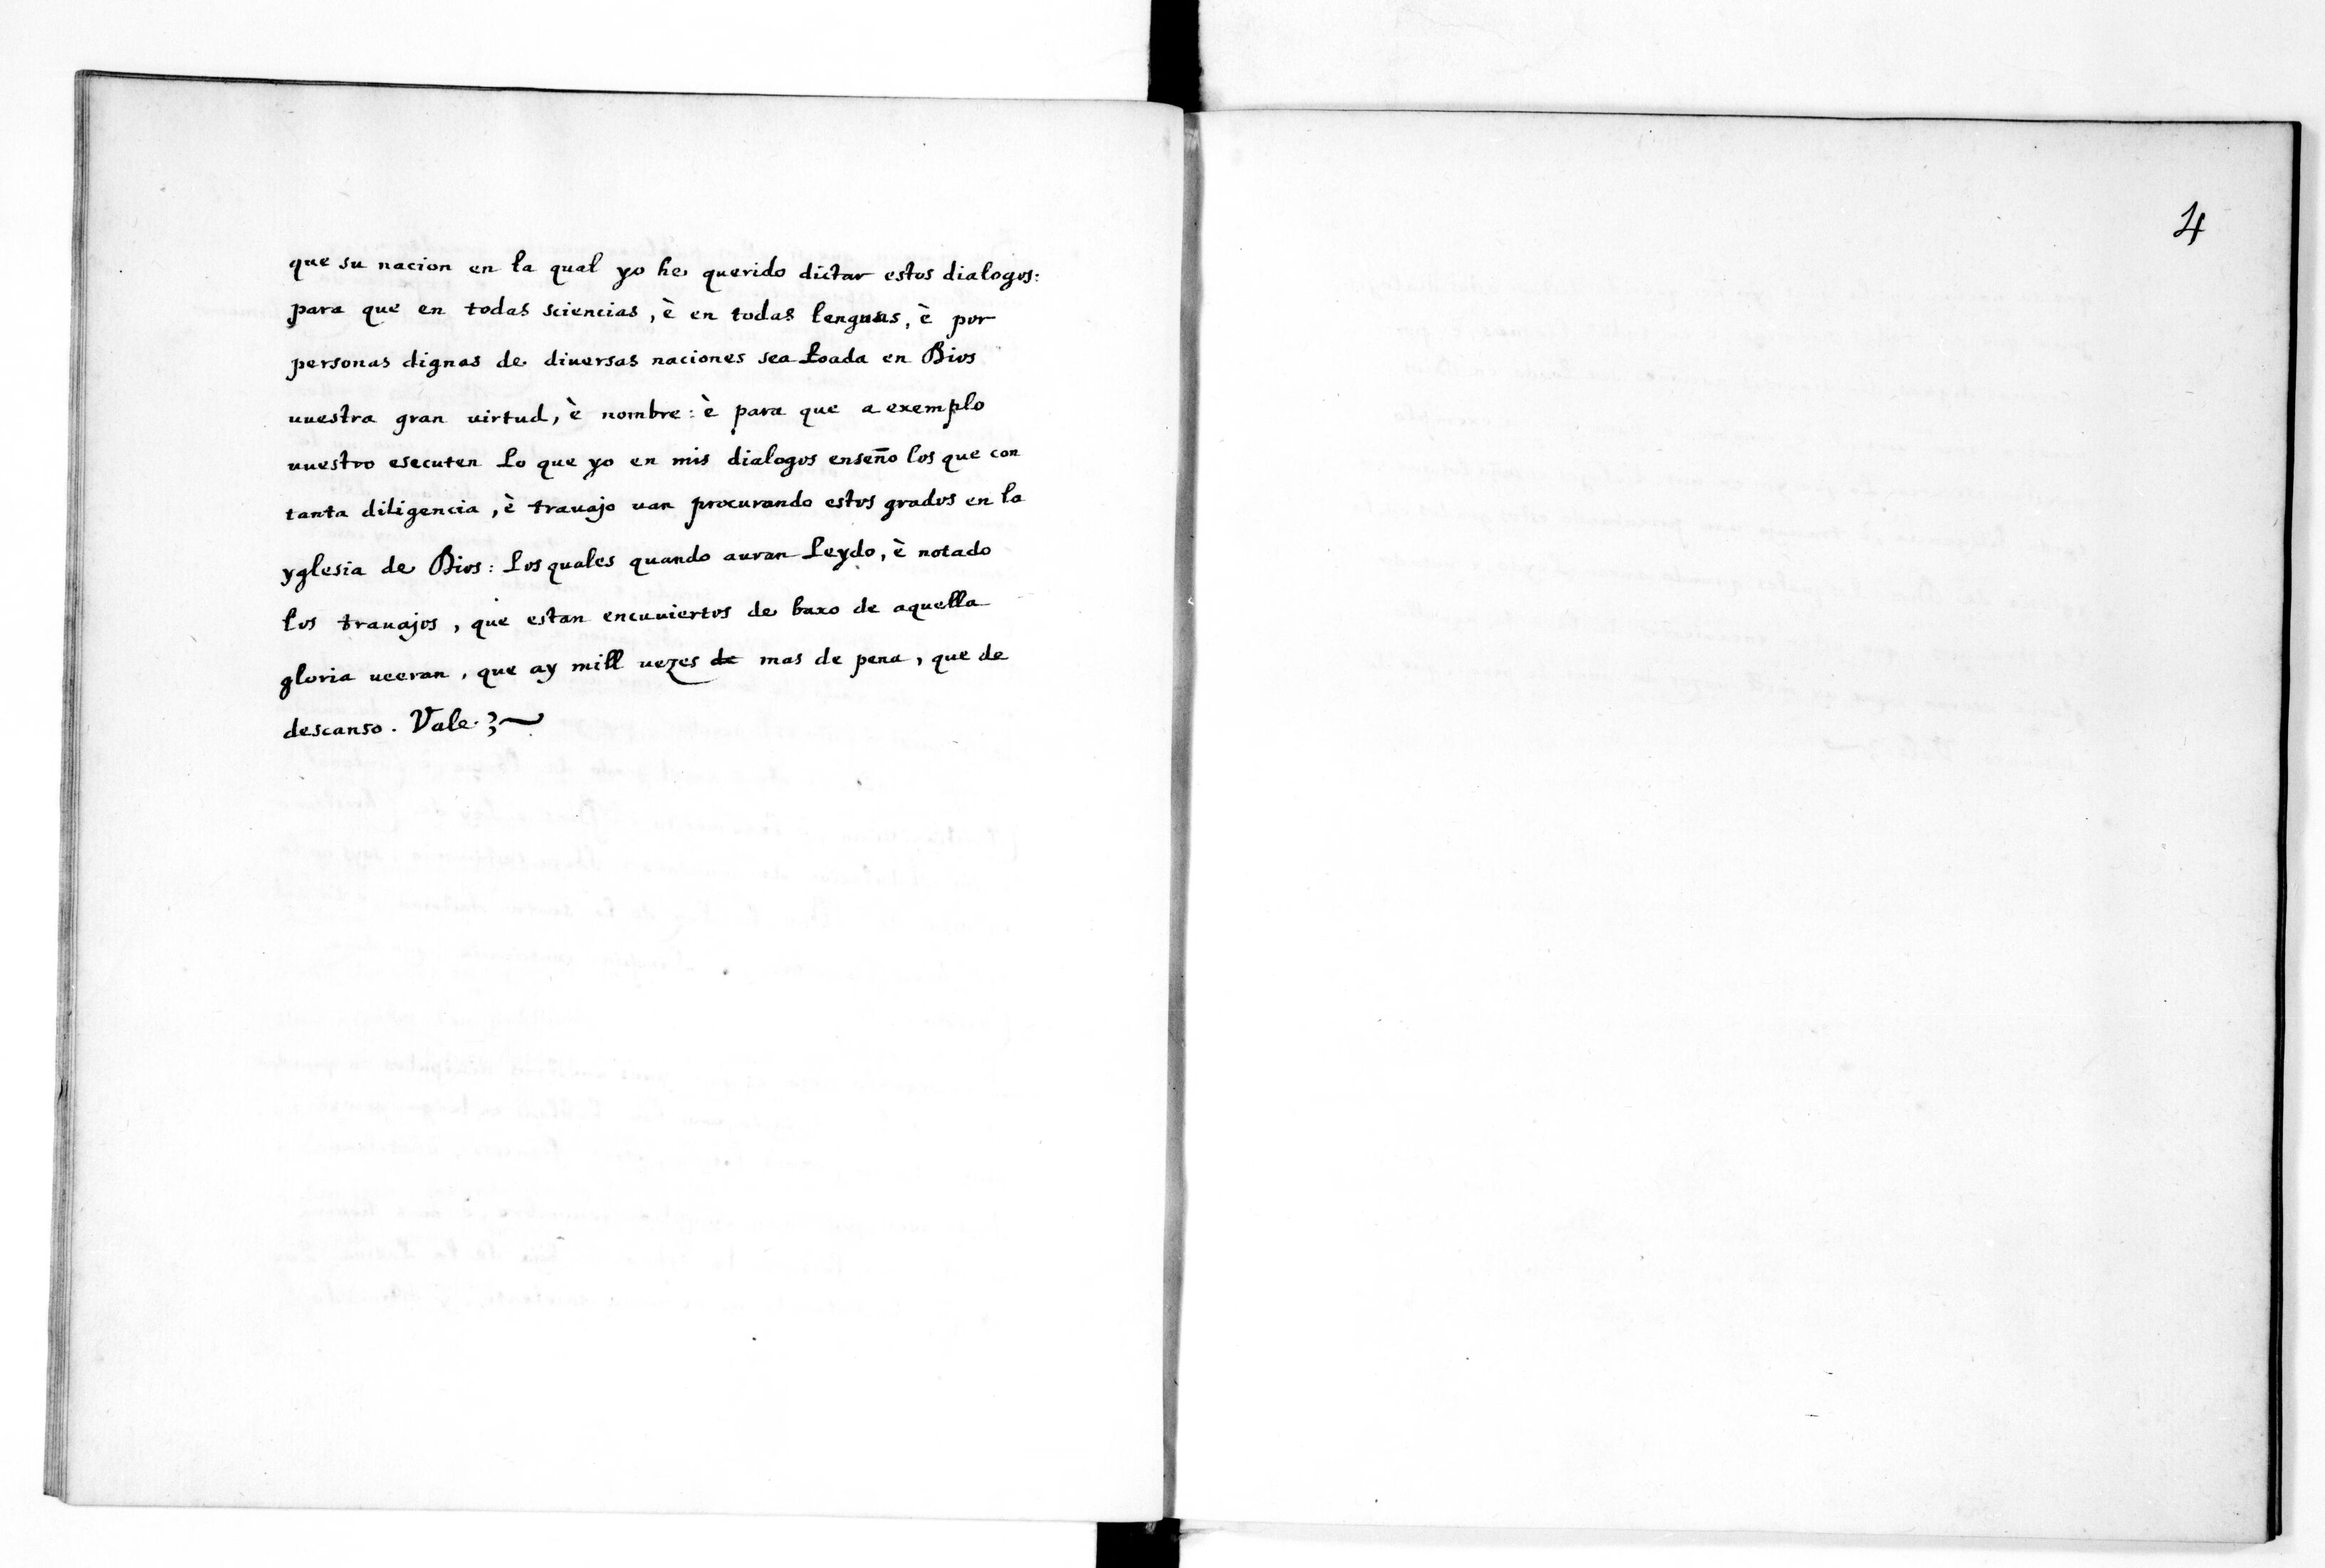 que su nacion en la qual yo he querido dictar estos dialogos:
para que en todas sciencias, è en todas lenguas, è por
personas dignas de diuersas naciones sea Loada en Dios
uuestra gran uirtud, è nombre: è para que a exemplo
uuestro esecuten Lo que yo en mis dialogos enseño los que con
tanta diligencia, è trauajo uan procurando estos grados en la
yglesia de Dios: Los quales quando auran Leydo, è notado
los trauajos, que estan encuuiertos de baxo de aquella
gloria ueeran, que ay mill uezes de mas de pena, que de
descanso. Vale.
4